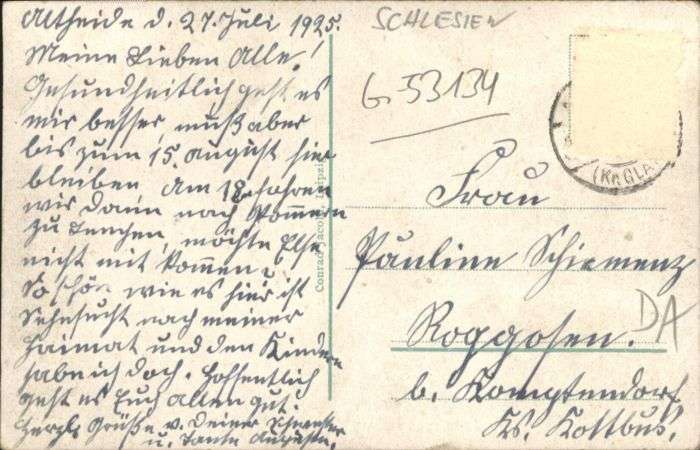 Altheide d. 27. Juli 1925.
Meine Lieben Alle!
Gesundheitlich geht es
mir besser, muß aber
bis zum 15. August hier
bleiben. Am 18. fahren
wir dann nach Pommern
zu Tenchen, möchte Else
nicht mit kommen?
So schön wie es hier ist
Sehnsucht nach meiner
Heimat und den Kindern
habe ich doch. Hoffentlich
geht es Euch allen gut.
Herzl. Grüße v. Deiner Schwester
u. Tante Auguste.
Conrad Leipzig
SCHLESIEN
G. 53134
(KR. GLA
Frau
Pauline Schiemenz
Roggosen.
b. Komptendorf
Ks. Kottbus.
DA